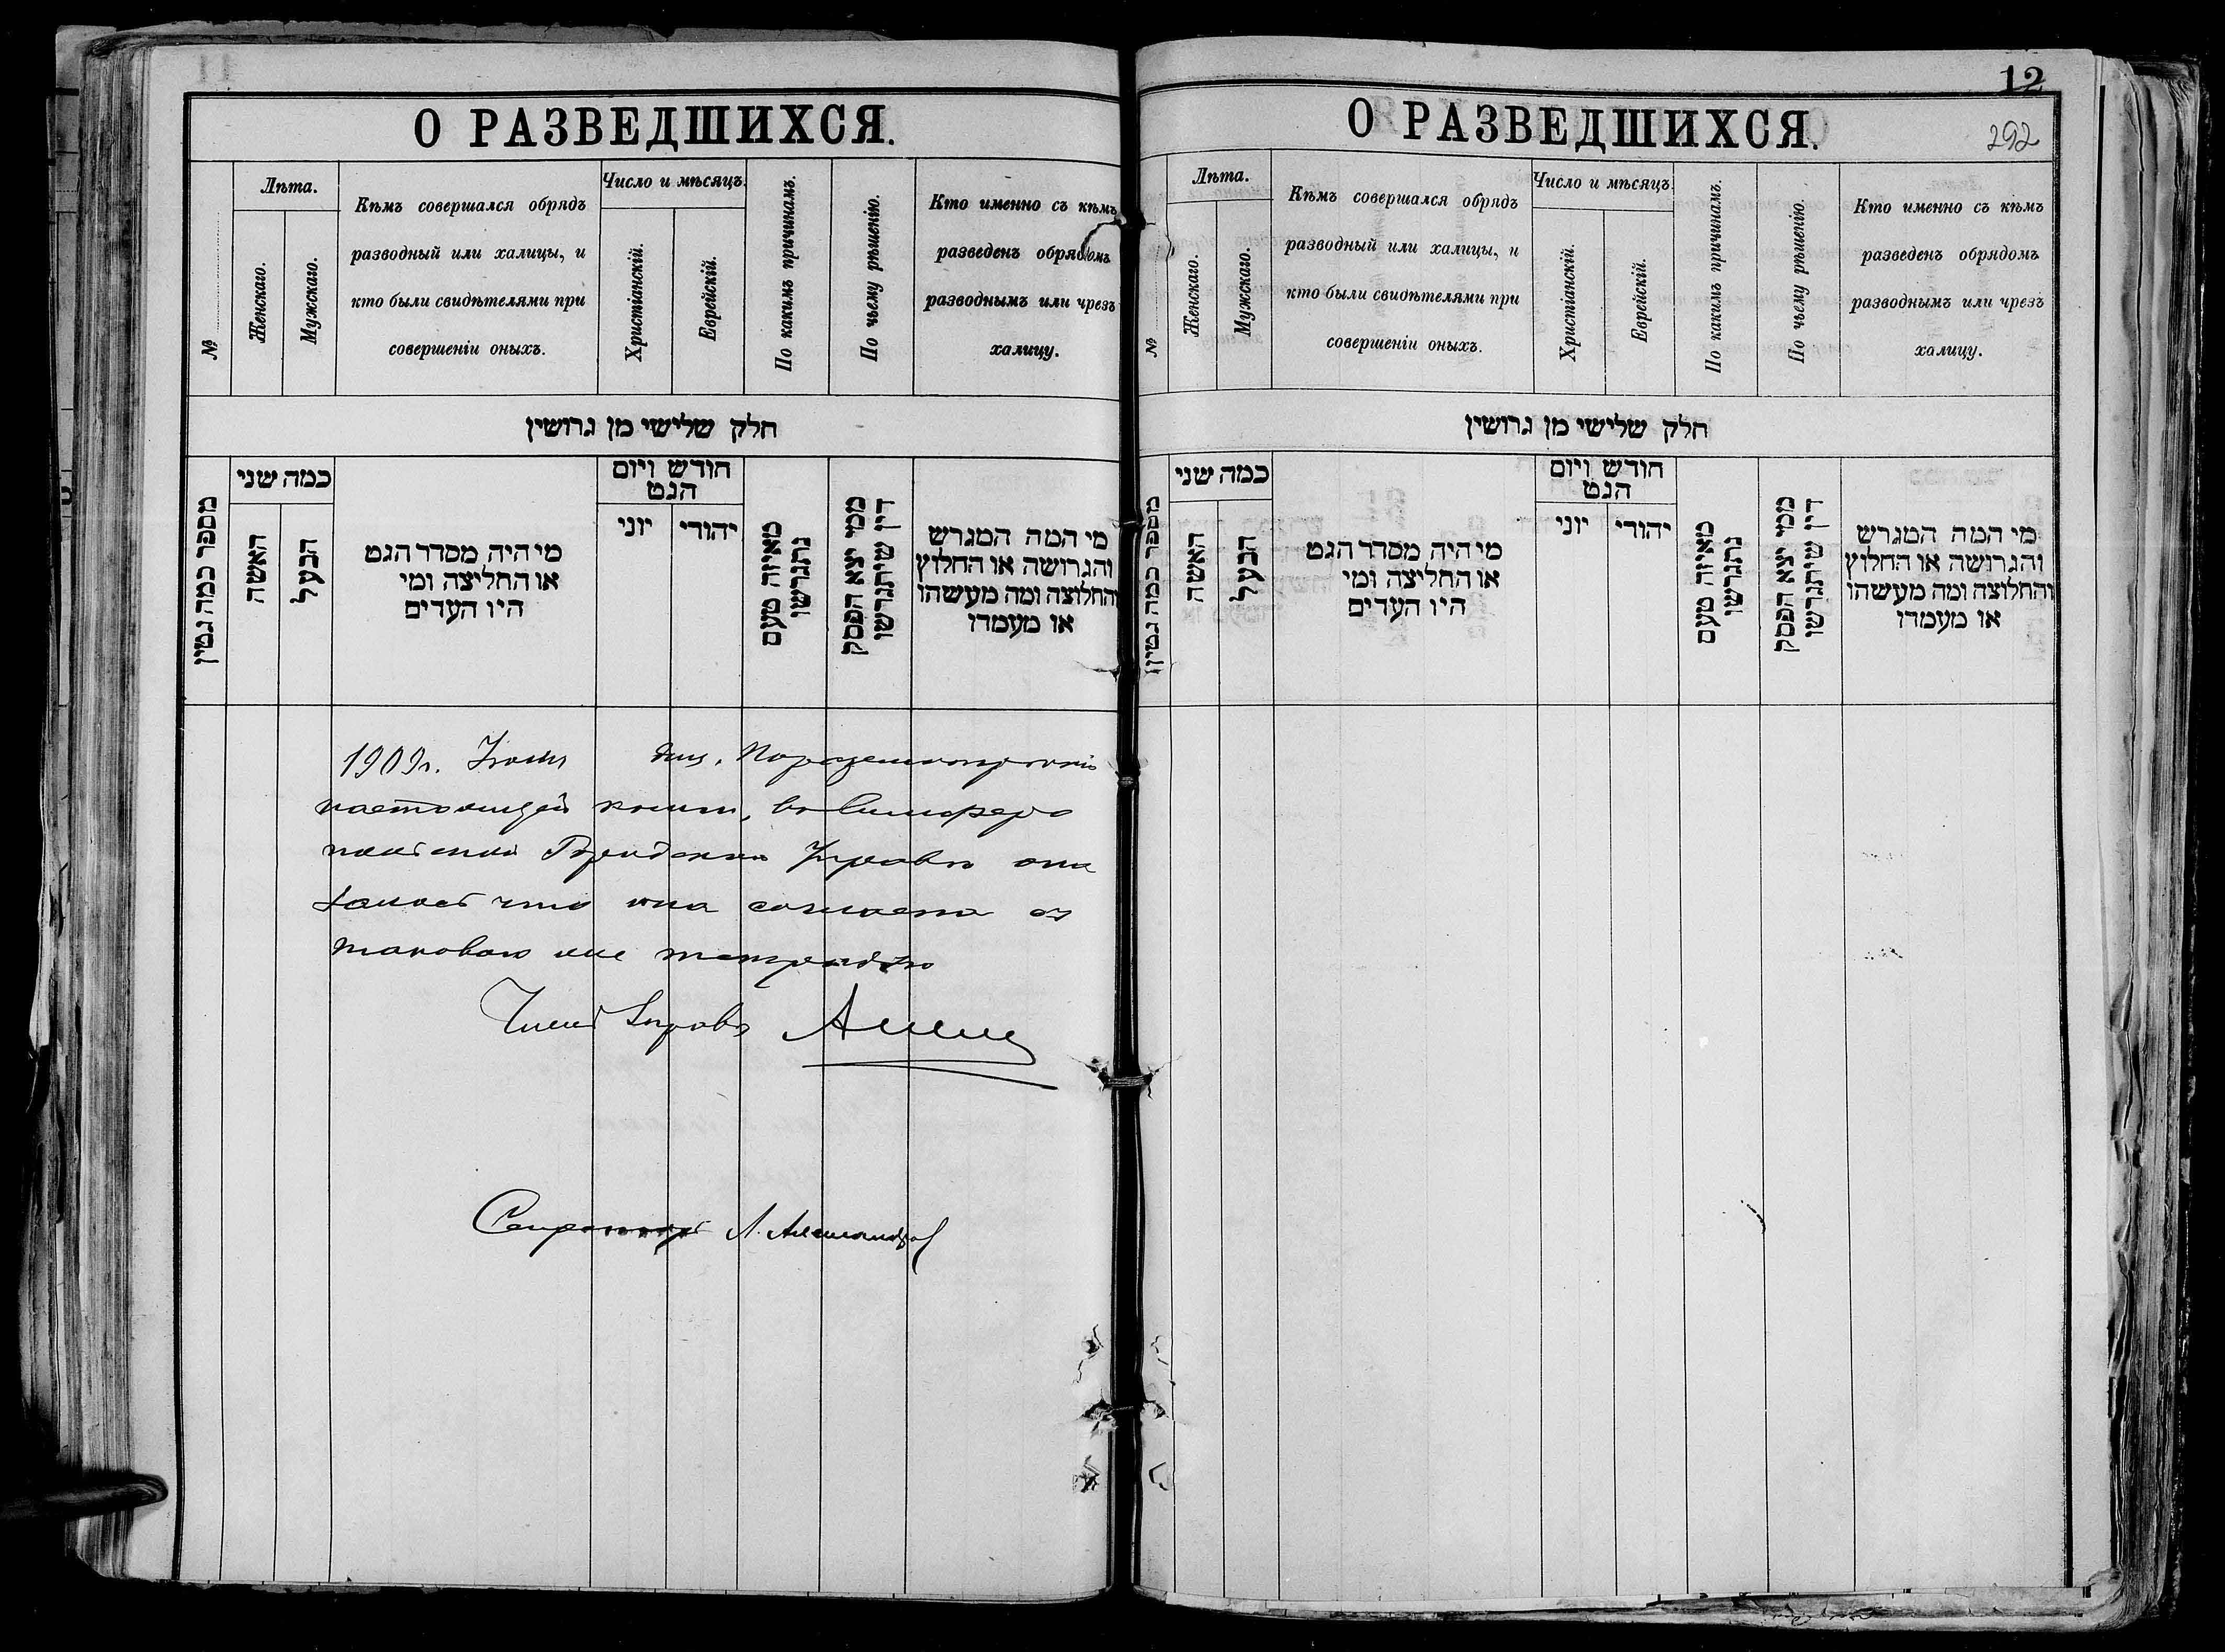 11
О РАЗВЕДШИХСЯ.
№
Лѣта.
Женскаго.
Мужскаго.
Кѣмъ совершался обрядъ
разводный или халицы, и
кто были свидѣтелями при
совершеніи оныхъ.
Число и мѣсяцъ.
Христіанскій.
Еврейскій.
По какимъ причинамъ.
По чьему рѣшенію.
Кто именно съ кѣмъ
разведенъ обрядомъ
разводнымъ или чрезъ
халицу.
חלק שלישי מן גרושין
מספר כמה גטין
כמה שני
האשה
הבעל
מי היה מסדר הגט
או החליצה ומי
היו העדים
חודש ויום
הגט
יוני
יהודי
מאיזה טעם
נתגרשו
ממי יצא הפסק
דין שיתגרשו
מי המה המגרש
והגרושה או החלוץ
והחלוצה ומה מעשהו
או מעמדו
1909г. Іюня дня. По разсмотрѣніи
настоящей книги, въ Симферо
польской Городской Управѣ ока
залось что она согласна съ
таковою же тетрадью
Членъ Управы
Секретарь Л. Александров
12
292
О РАЗВЕДШИХСЯ.
№
Лѣта.
Женскаго.
Мужскаго.
Кѣмъ совершался обрядъ
разводный или халицы, и
кто были свидѣтелями при
совершеніи оныхъ.
Число и мѣсяцъ.
Христіанскій.
Еврейскій.
По какимъ причинамъ.
По чьему рѣшенію.
Кто именно съ кѣмъ
разведенъ обрядомъ
разводнымъ или чрезъ
халицу.
חלק שלישי מן גרושין
מספר כמה גטין
כמה שני
האשה
הבעל
מי היה מסדר הגט
או החליצה ומי
היו העדים
חודש ויום
הגט
יוני
יהודי
מאיזה טעם
נתגרשו
ממי יצא הפסק
דין שיתגרשו
מי המה המגרש
והגרושה או החלוץ
והחלוצה ומה מעשהו
או מעמדו